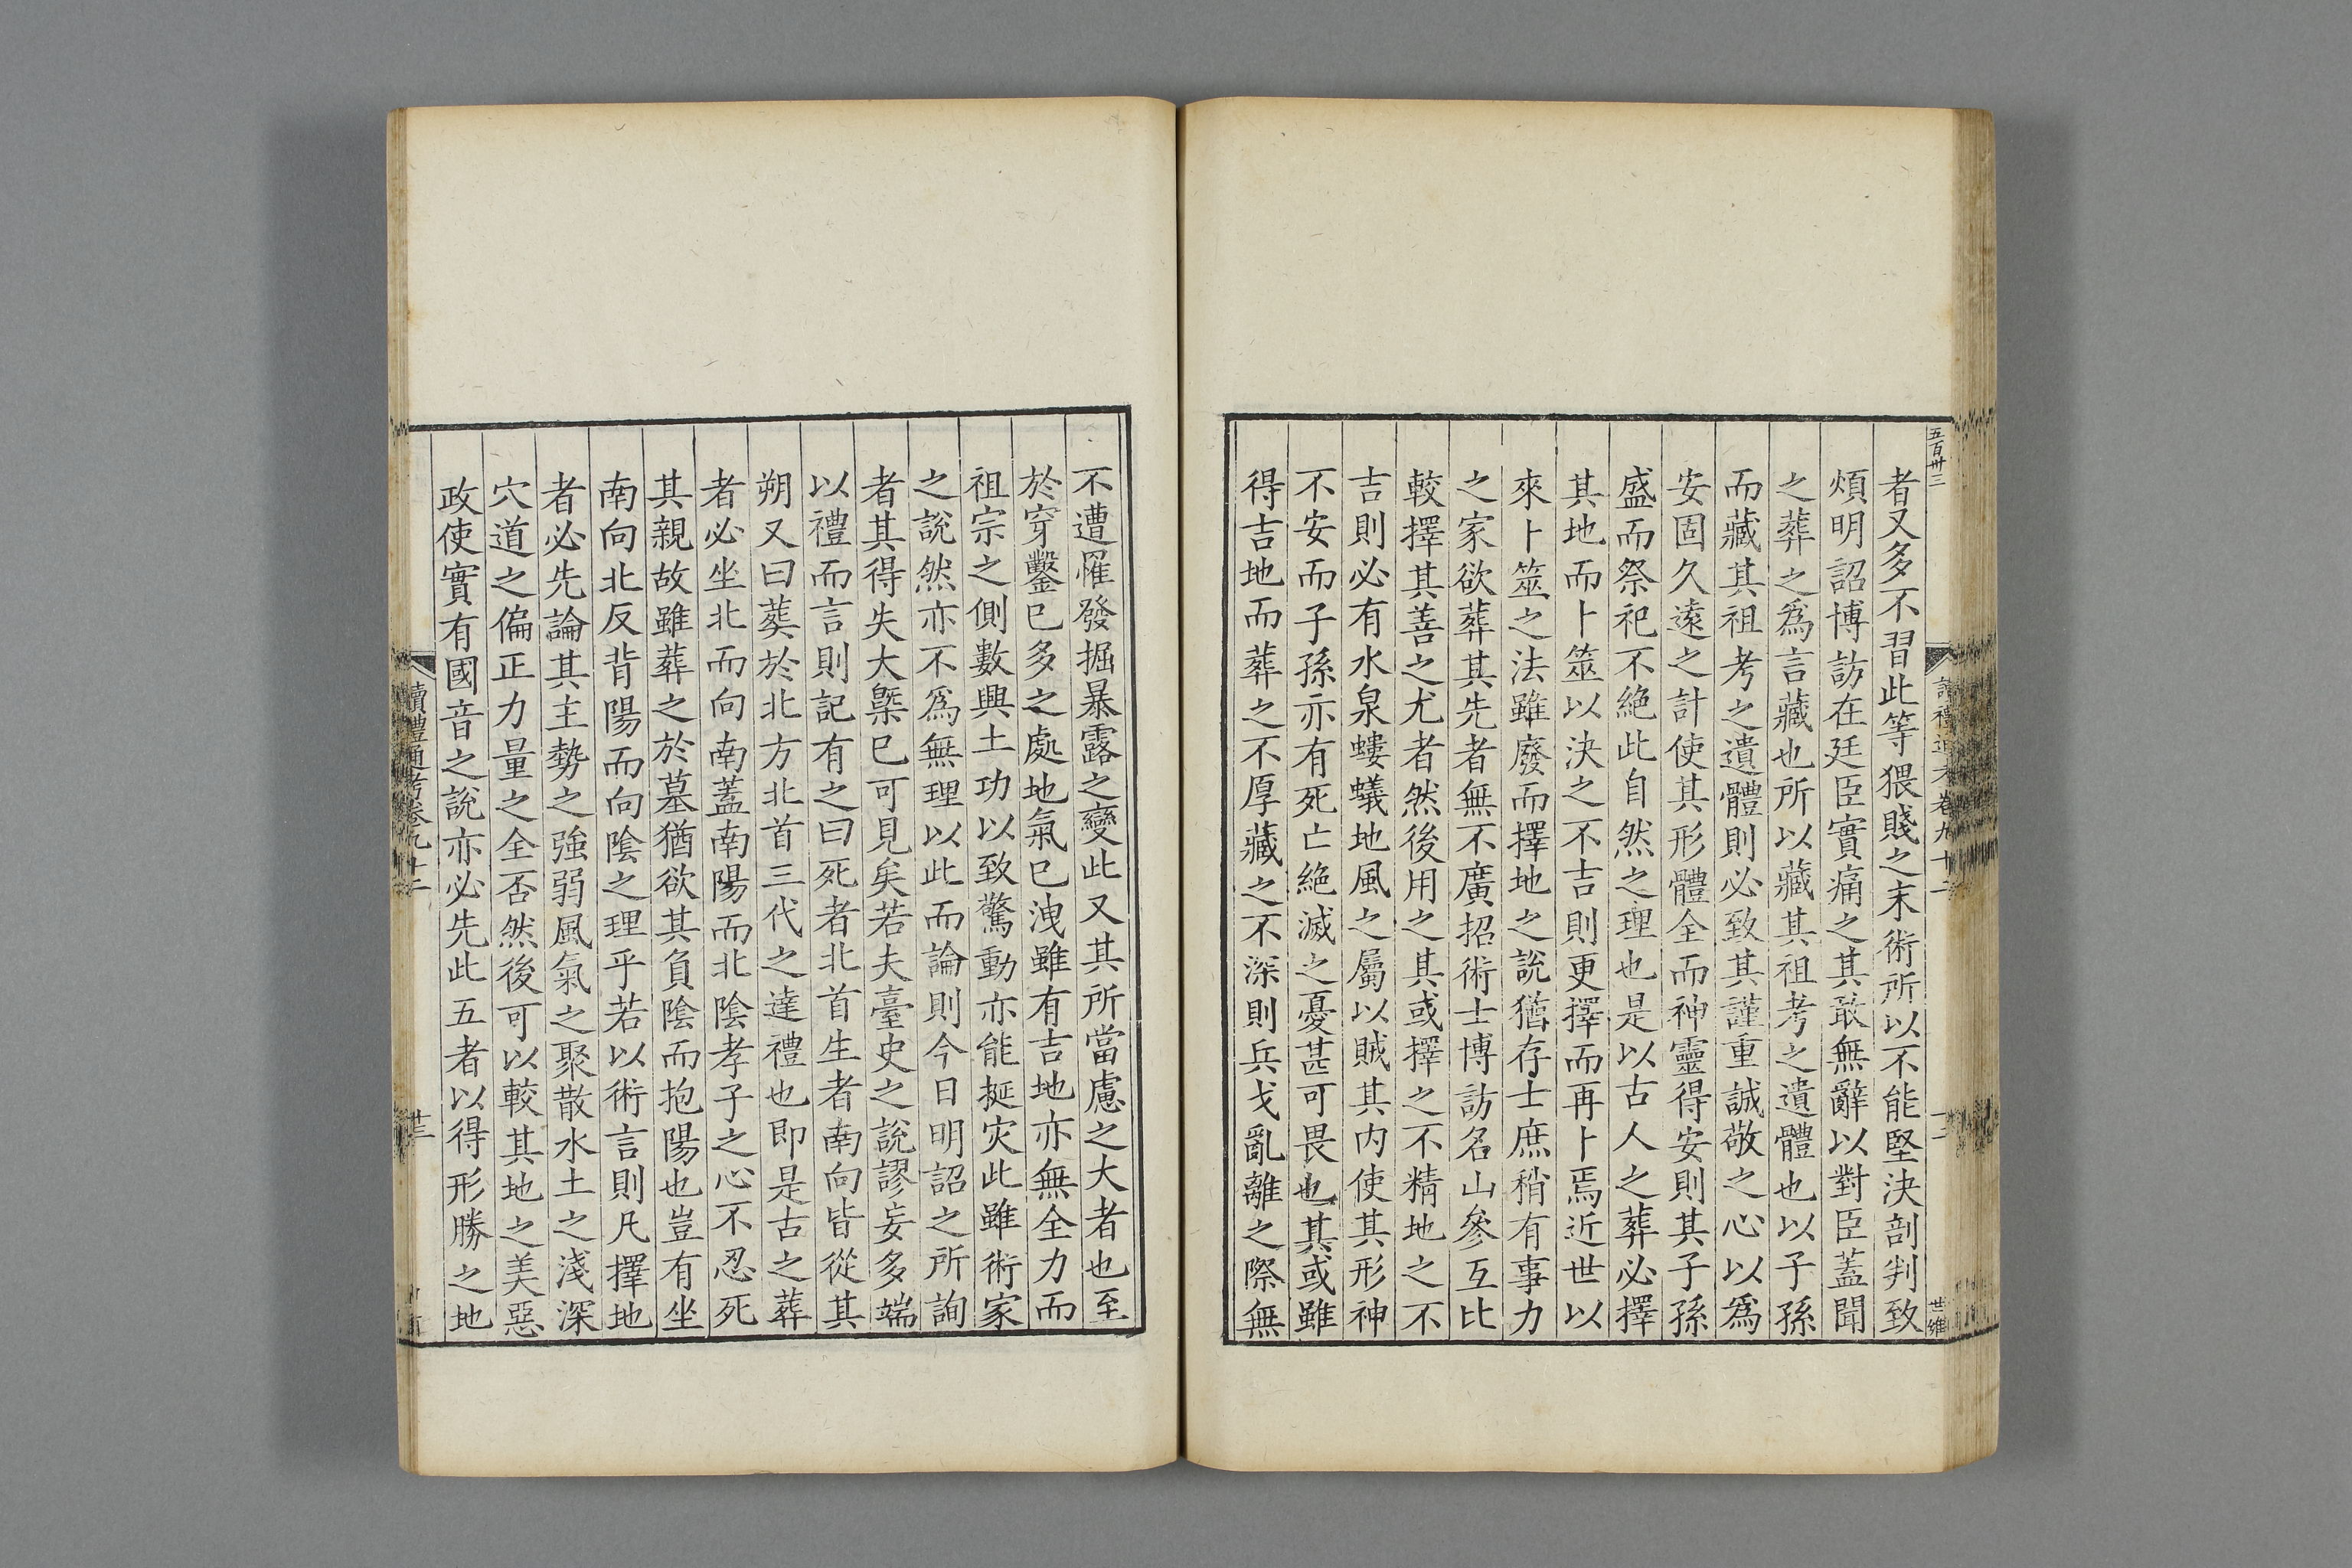 五百卅三
者又多不習此等猥賤之末術所以不能堅決剖判致
煩明詔博訪在廷臣實痛之其敢無辭以對臣蓋聞
之葬之爲言藏也所以藏其祖考之遺體也以子孫
而藏其祖考之遺體則必致其謹重誠敬之心以爲
安固久遠之計使其形體全而神靈得安則其子孫
盛而祭祀不絶此自然之理也是以古人之葬必擇
其地而卜筮以決之不吉則更擇而再卜焉近世以
來卜筮之法雖廢而擇地之說猶存士庶稍有事力
之家欲葬其先者無不廣招術士博訪名山參互比
較擇其善之尤者然後用之其或擇之不精地之不
吉則必有水泉螻蟻地風之屬以賊其内使其形神
不安而子孫亦有死亡絶滅之憂甚可畏也其或雖
得吉地而葬之不厚藏之不深則兵戈亂離之際無
不遭罹發掘暴露之變此又其所當慮之大者也至
於穿鑿已多之處地氣已洩雖有吉地亦無全力而
祖宗之側數興土功以致驚動亦能挻灾此雖術家
之說然亦不爲無理以此而論則今日明詔之所詢
者其得失大槩已可見矣若夫臺史之說謬妄多端
以禮而言則記有之曰死者北首生者南向皆從其
朔又曰葬於北方北首三代之達禮也即是古之葬
者必坐北而向南蓋南陽而北陰孝子之心不忍死
其親故雖葬之於墓猶欲其負陰而抱陽也豈有坐
南向北反背陽而向陰之理乎若以術言則凡擇地
者必先論其主勢之強弱風氣之聚散水土之淺深
穴道之偏正力量之全否然後可以較其地之美惡
政使實有國音之說亦必先此五者以得形勝之地
讀禮通考卷九十二